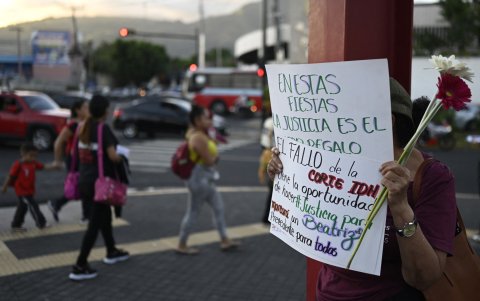 EN ESTAS
FIESTAS
LA JUSTICIA ES EL
MEJOR REGALO
EL FALLO de la
CORTE IDH
es la oportunidad
de hacer #Justicia por
Beatriz